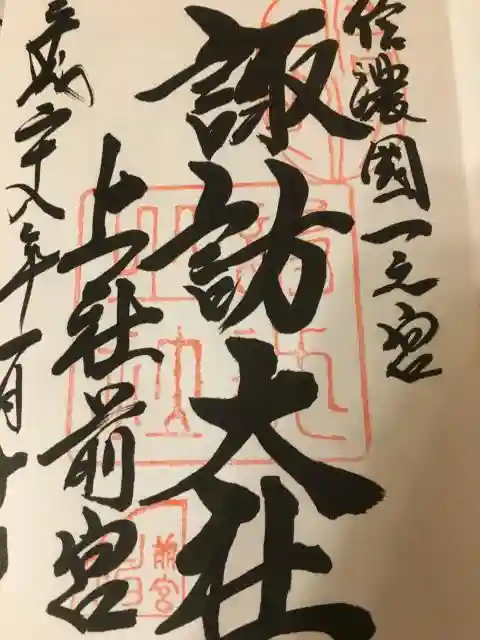 信濃國一之宮
諏訪大社
上社前宮
平成二十八年一月十
前宮